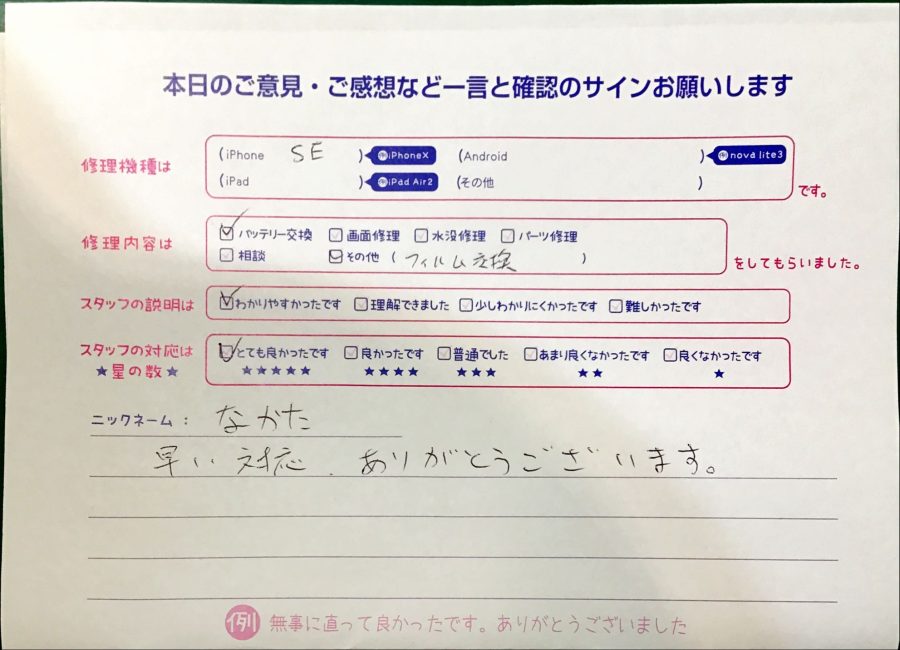 本日のご意見・ご感想など一言と確認のサインお願いします
修理機種は (iPhone SE ) 例iPhoneX (Android ) 例nova lite3
(iPad ) 例iPad Air2 (その他 ) です。
修理内容は ☑バッテリー交換 □画面修理 □水没修理 □パーツ修理
□相談 ☑その他 ( フィルム交換 ) をしてもらいました。
スタッフの説明は ☑わかりやすかったです □理解できました □少しわかりにくかったです □難しかったです
スタッフの対応は ☑とても良かったです □良かったです □普通でした □あまり良くなかったです □良くなかったです
★星の数★ ★★★★★ ★★★★ ★★★ ★★ ★
ニックネーム： なかた
早い対応、ありがとうございます。
例 無事に直って良かったです。ありがとうございました